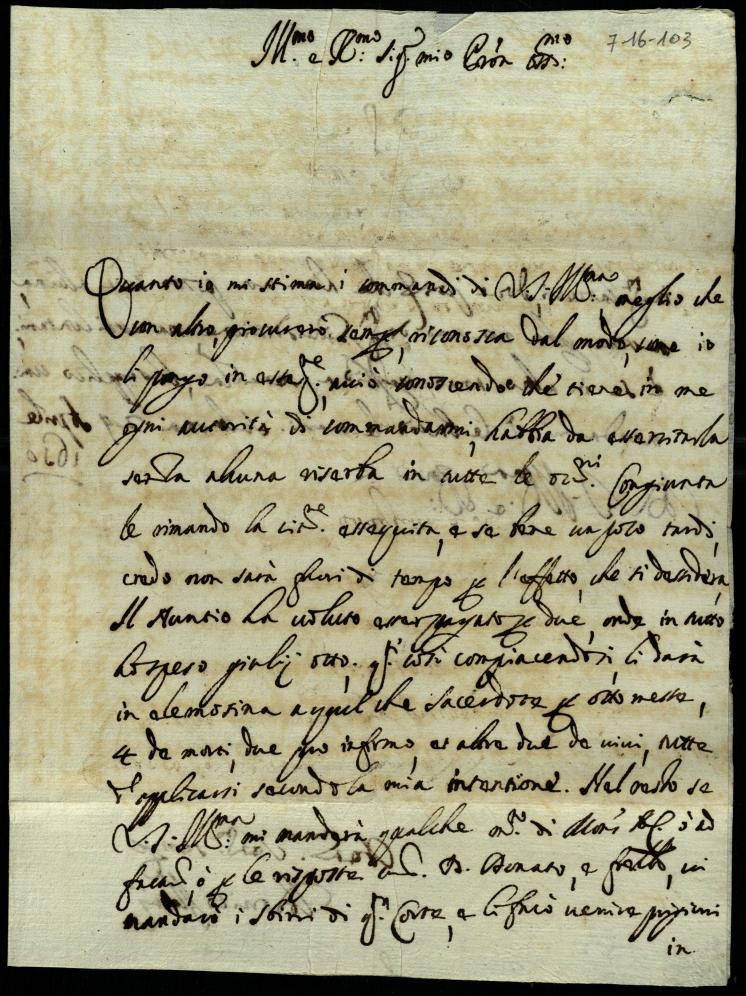 7-16-103
Ill.mo e R.mo Sig.r mio Prõn Oss.mo:
Quanto io mi stimi i commandi di V.S. Ill.ma, meglio che
con altro, procurerò sempre, riconosca dal modo, come io
li pongo in esse.ne, acciò conoscendo che tiene in me
ogni autorità di commandarmi, habbia da essercitarla
senza alcuna riserba in tutte le occ.ni. Congiunta
le rimando la cit.ne esseguita, e se bene un poco tardi,
credo non sarà fuori di tempo p l'effetto, che si desidera
Il Nuntio ha voluto esser pagato p due, onde in tutto
ho speso giulij otto, q.li così compiacendosi, li darà
in elemosina a qualche sacerdote p otto messe,
4 de morti, due pro infirmo, et altre due de vivi, tutte
applicarsi secondo la mia intentione. Nel resto se
V.S. Ill.ma mi manderà qualche di Mons ò ad
ò p le risposte D. Donato, e
mandarò i sbirri di q.a Corte, e li farò venire prigioni
in
Aprile
1650